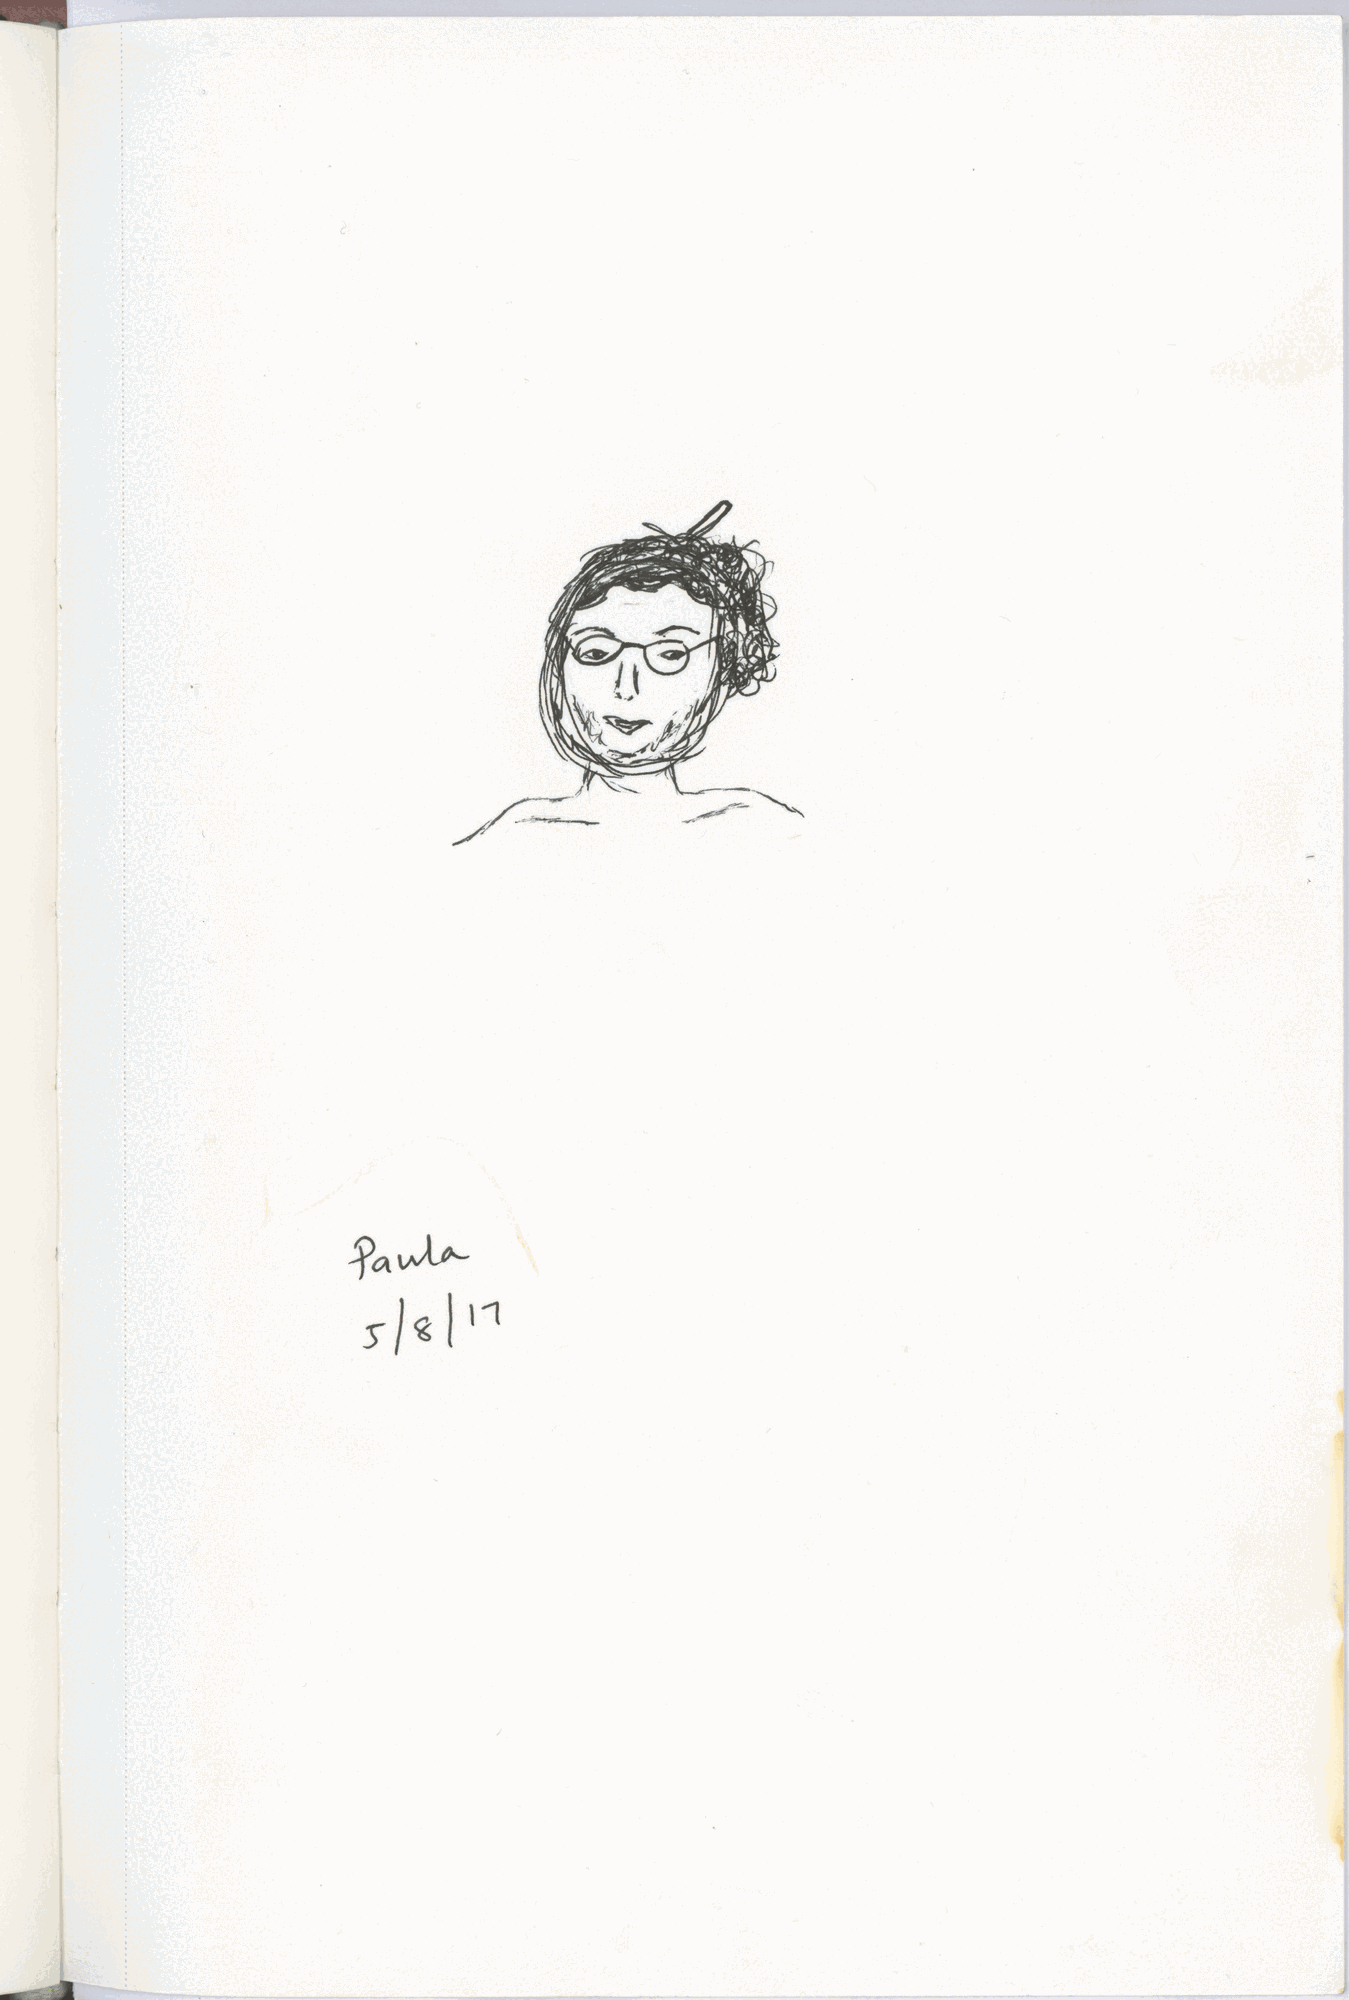 Paula
5/8/17